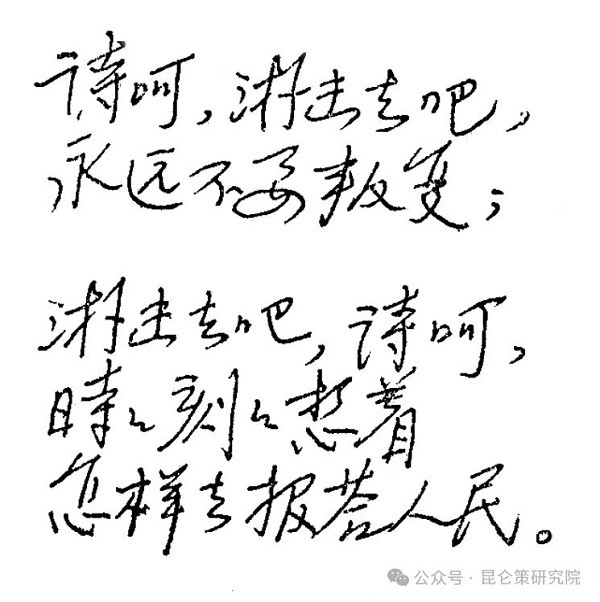 诗呵，游击去吧，
永远不要叛变；
游击去吧，诗呵，
時々刻々想着
怎样去报答人民。
公众号·昆仑策研究院